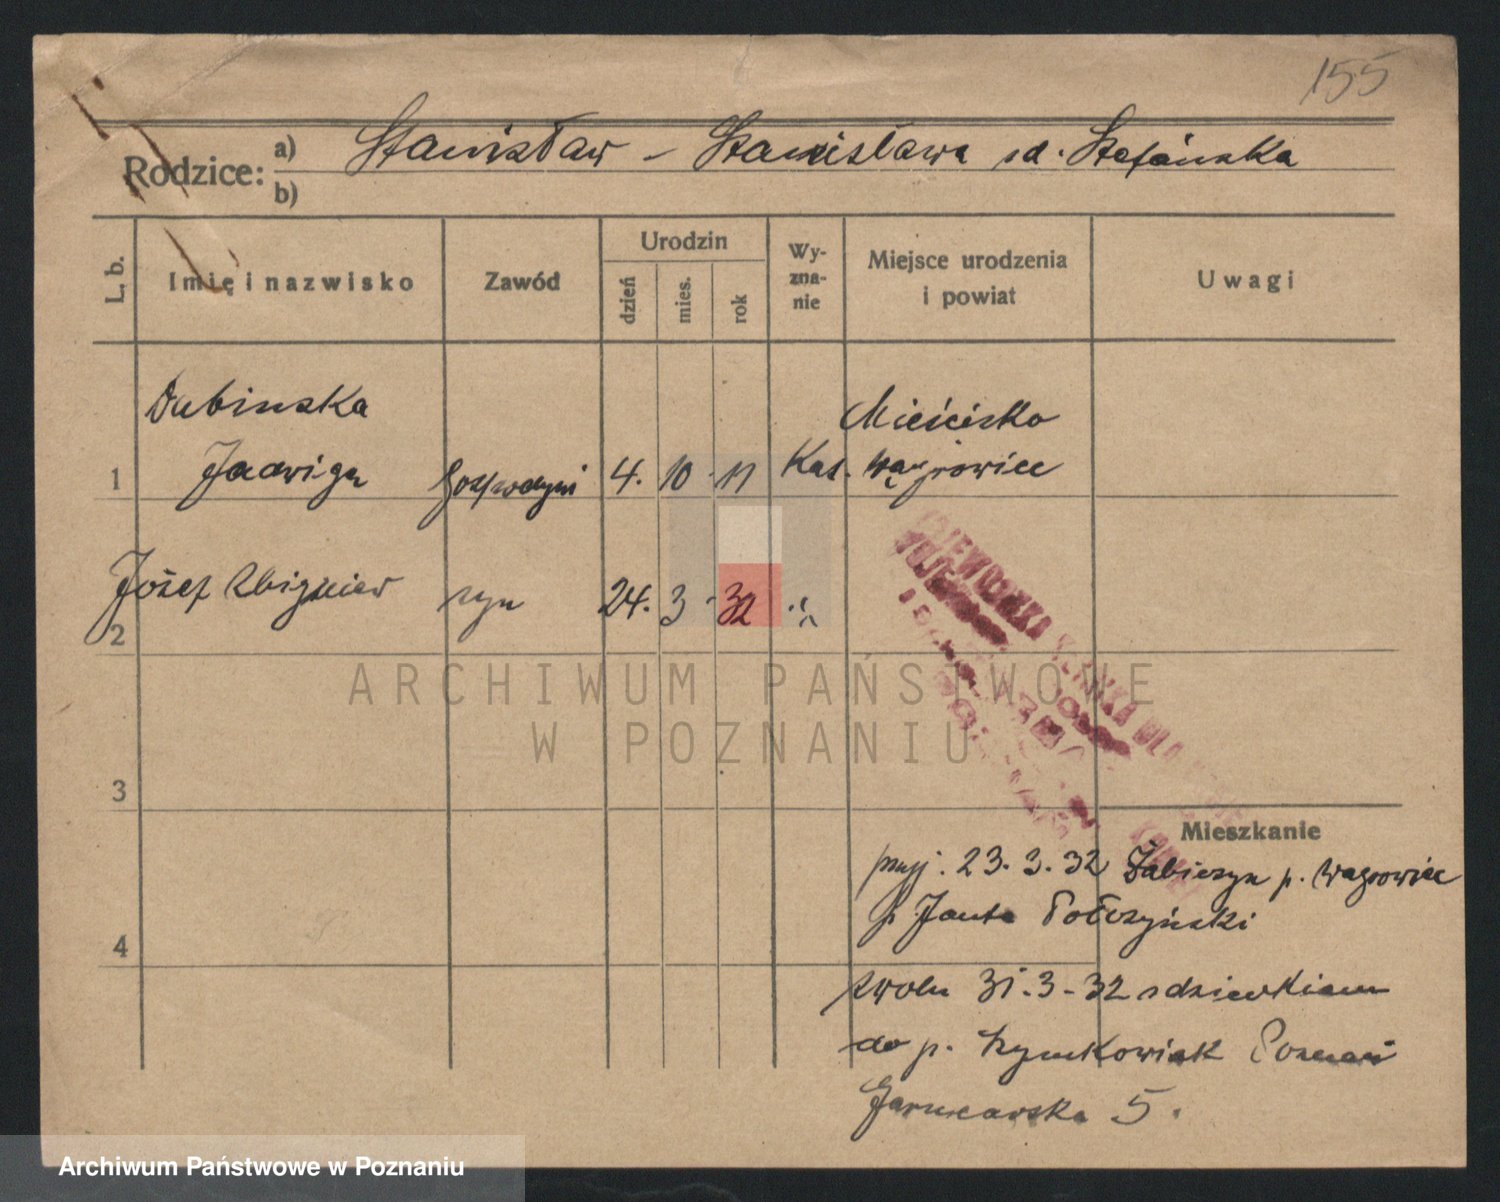 155
Rodzice: a) Stanisław - Stanisława zd. Stefańska
b)
L. b. Imię i nazwisko Zawód Urodzin dzień mies. rok Wyznanie Miejsce urodzenia i powiat Uwagi
Dubinska Mieścisko
1 Jadwiga 4. 10. 11 Kat. Wągrowiec
2 Józef Zbigniew syn 24. 3. 32 .;.
3
WOJEWÓDZKA KLINIKA DLA
Mieszkanie
przyj. 23. 3. 32 Żabiczyn p. Wągrowiec
p. Janta Połczyński
4
zwoln 31. 3. 32 z dzieckiem
do p. Szymkowiak Poznań
5.
ARCHIWUM PAŃSTWOWE
W POZNANIU
Archiwum Państwowe w Poznaniu